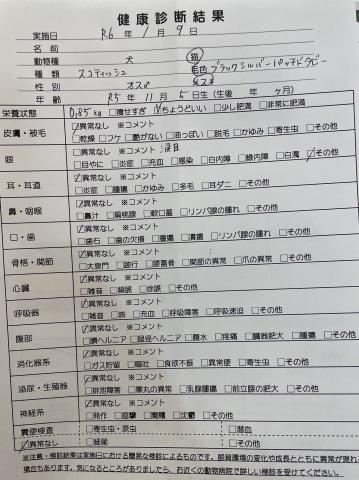 健康診断結果
実施日 R6 年 1 月 9 日
名前
動物種 犬 猫
種類 スコティッシュ 毛色 ブラックシルバーパッチドタビー
性別 オス♂ メス♀
年齢 R5 年 11 月 5 日生(生後 年 ヶ月)
栄養状態 0.85kg □痩せすぎ ☑ちょうどいい □少し肥満 □非常に肥満
皮膚・被毛 ☑異常なし ※コメント
□乾燥 □フケ □艶がない □油っぽい □脱毛 □かゆみ □寄生虫 □その他
眼 □異常なし ※コメント 涙目
□目やに □炎症 □充血 □感染 □白内障 □緑内障 □白濁 ☑その他
耳・耳道 ☑異常なし ※コメント
□炎症 □腫瘍 □かゆみ □多毛 □耳ダニ □その他
鼻・咽喉 ☑異常なし ※コメント
□鼻汁 □扁桃腺 □軟口蓋 □リンパ腺の腫れ □その他
口・歯 ☑異常なし ※コメント
□歯石 □歯の欠損 □腫瘍 □潰瘍 □リンパ腺の腫れ □その他
骨格・関節 ☑異常なし ※コメント
□大泉門 □跛行 □膝蓋骨 □関節の異常 □爪の異常 □その他
心臓 ☑異常なし ※コメント
□雑音 □頻脈 □徐脈 □その他
呼吸器 ☑異常なし ※コメント
□雑音 □咳 □充血 □呼吸障害 □呼吸速迫 □その他
腹部 ☑異常なし ※コメント
□臍ヘルニア □鼠径ヘルニア □腹水 □疼痛 □臓器肥大 □腫瘍 □その他
消化器系 ☑異常なし ※コメント
□ガス貯留 □嘔吐 □食欲不振 □異常便 □寄生虫 □その他
泌尿・生殖器 ☑異常なし ※コメント
□排泄障害 □睾丸の異常 □乳腺腫瘍 □前立腺の肥大 □その他
神経系 ☑異常なし ※コメント
□発作 □痙攣 □沈鬱 □その他
糞便検査 □寄生虫・原虫 □潜血
☑異常なし □細菌 □その他
※注意・検診結果は実施日における簡易な検診によるものです。飼育環境の変化や成長とともに異常が現れ
場合もあります。気になるところがありましたら、お近くの動物病院で詳しい検診を受けてください。